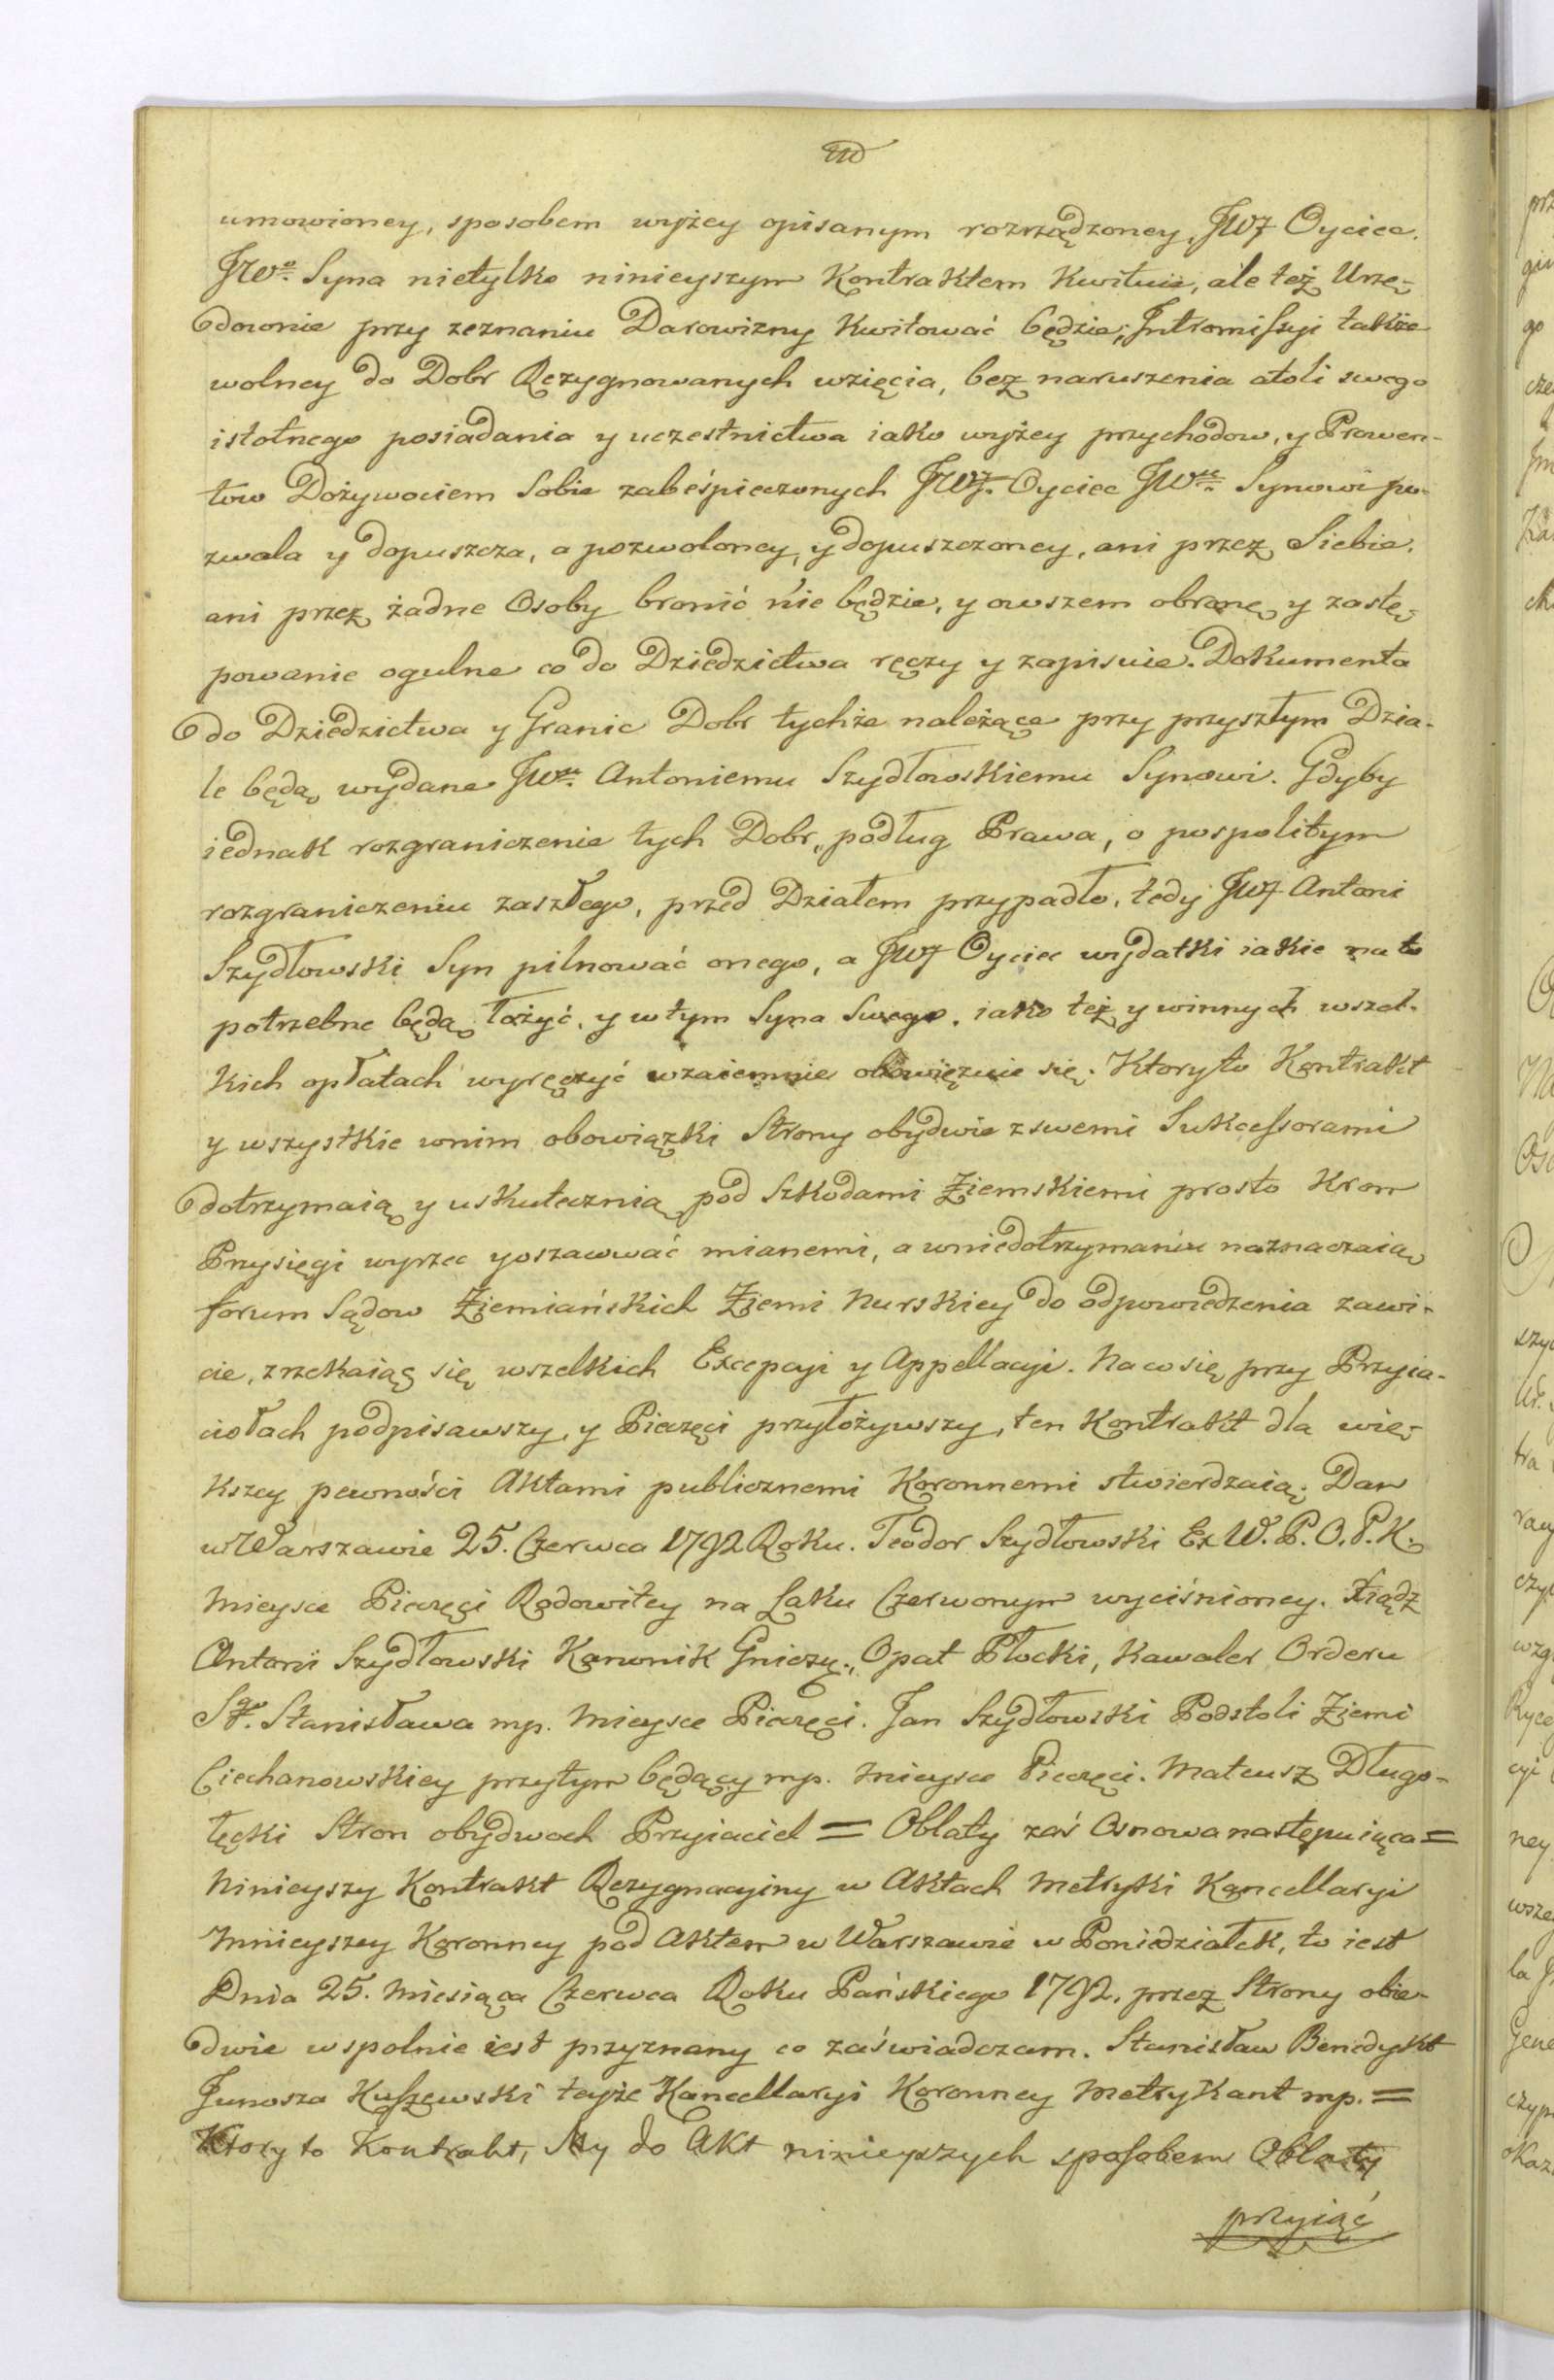 umowioney, sposobem wyżey opisanym rozrządzoney, JWJ Oyciec.
JWo. Syna nietylko ninieyszym Kontraktem Kwituie, ale też Urzę-
downie przy zeznaniu Darowizny Kwitować będzie; Intromissyi także
wolney do Dobr Rezygnowanych wzięcia, bez naruszenia atoli swego
istotnego posiadania y uczestnictwa iako wyżey przychodow, y Prowen-
tow Dożywociem Sobie zabeśpieczonych JWJ. Oyciec JWmu. Synowi po-
zwala y dopuszcza, a pozwoloney, y dopuszczoney, ani przez Siebie,
ani przez żadne Osoby bronić nie będzie, y owszem obronę y zastę-
powanie ogulne co do Dziedzictwa ręczy y zapisuie. Dokumenta
do Dziedzictwa y Granic Dobr tychże należące przy przyszłym Dzia-
le będą wydane JWmu. Antoniemu Szydłowskiemu Synowi. Gdyby
iednak rozgraniczenie tych Dobr, podług Prawa, o pospolitym
rozgraniczeniu zaszłego, przed Działem przypadło, tedy JWJ Antoni
Szydłowski Syn pilnować onego, a JWJ Oyciec wydatki iakie na to
potrzebne będą łożyć, y w tym Syna Swego, iako też y winnych wszel-
kich opłatach wyręczyć wzaiemnie obowięzuie się. Ktoryto Kontrakt
y wszystkie wnim obowiązki Strony obydwie z swemi Sukcessorami
dotrzymaią y uskutecznią pod Szkodami Ziemskiemi prosto Krom
Przysięgi wyrzec yoszacować mianemi, a wniedotrzymaniu naznaczaią
forum Sądow Ziemiańskich Ziemi Nurskiey do odpowiedzenia zawi-
cie, zrzekaiąc się wszelkich Excepcyi y Appellacyi. Na co się przy Przyia-
ciołach podpisawszy, y Pieczęci przyłożywszy, ten Kontrakt dla wię-
kszey pewności Aktami publicznemi Koronnemi stwierdzaią. Dan
w Warszawie 25. Czerwca 1792 Roku. Teodor Szydłowski Ex W. P. O. P. K.
Mieysce Pieczęci Rodowitey na Laku Czerwonym wyciśnioney. Xiądz
Antoni Szydłowski Kanonik Gniezń., Opat Płocki, Kawaler Orderu
Sgo. Stanisława mp. Mieysce Pieczęci. Jan Szydłowski Podstoli Ziemi
Ciechanowskiey przytym będący mp. Mieysce Pieczęci. Mateusz Długo-
łęcki Stron obydwoch Przyiaciel = Oblaty zaś Osnowa następuiąca =
Ninieyszy Kontrakt Rezygnacyiny w Aktach Metryki Kancellaryi
Mnieyszey Koronney pod Aktem w Warszawie w Poniedziałek, to iest
Dnia 25. Miesiąca Czerwca Roku Pańskiego 1792. przez Strony obie-
dwie wspolnie iest przyznany co zaświadczam. Stanisław Benedykt
Junosza Kuszewski teyże Kancellaryi Koronney Metrykant mp. =
Ktory to Kontrakt, My do Akt ninieyszych sposobem Oblaty
przyiąć